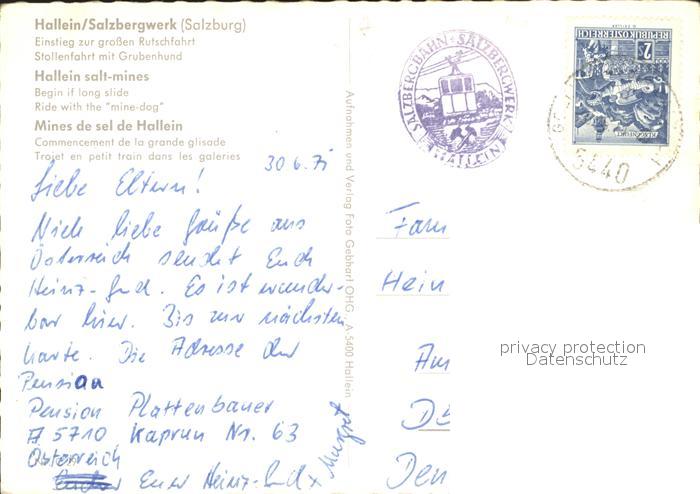 Hallein/Salzbergwerk (Salzburg)
Einstieg zur großen Rutschfahrt
Stollenfahrt mit Grubenhund
Hallein salt-mines
Begin if long slide
Ride with the "mine-dog"
Mines de sel de Hallein
Commencement de la grande glisade
Trojet en petit train dans les galeries
30.6.75
Liebe Eltern!
Viele liebe Grüße aus
Österreich sendet Euch
Heinz-Gud. Es ist wunder-
bar hier. Bis zur nächsten
Karte. Die Adresse der
Pension
Pension Plattenbauer
A 5710 Kaprun Nr. 63
Österreich
Euer Heinz-Gud x Margret
Aufnahmen und Verlag Foto Gebhart OHG, A-5400 Hallein
SALZBERGBAHN · SALZBERGWERK
HALLEIN
REPUBLIK ÖSTERREICH
2S
KLAGENFURT
5440
Fam
Hein
Am
Den
privacy protection
Datenschutz